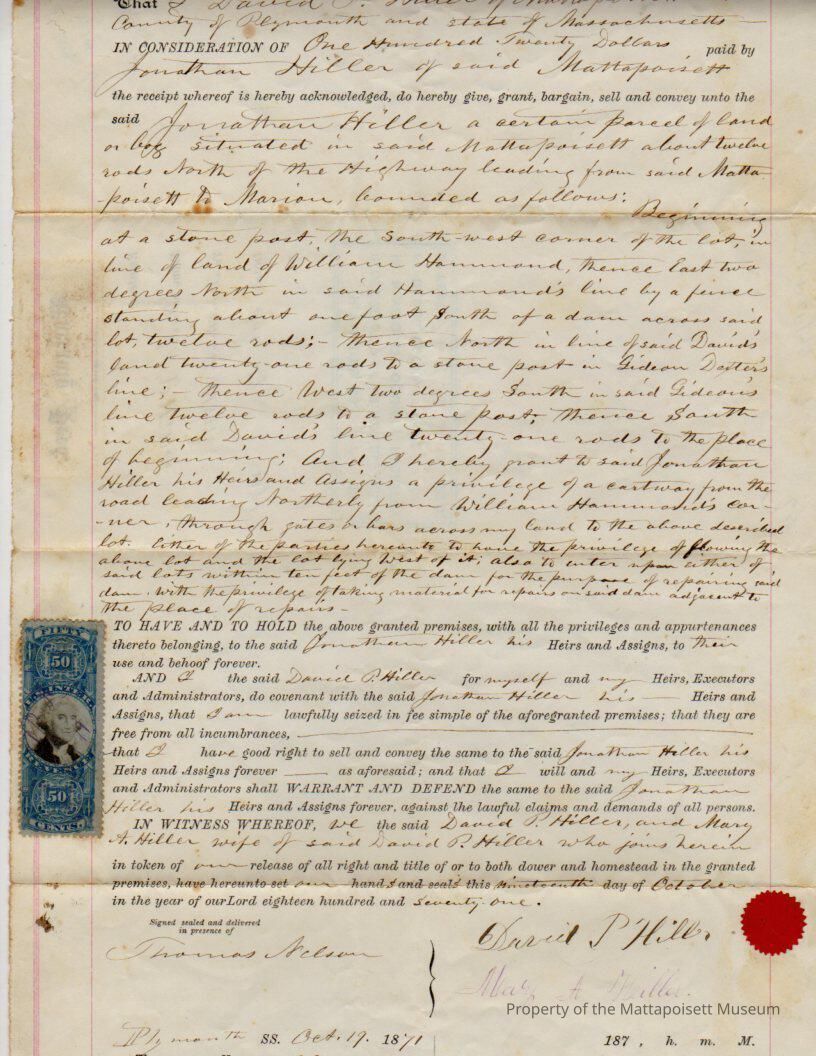 That I David P. Hiller of Mattapoisett
County of Plymouth and state of Massachusetts
IN CONSIDERATION OF One Hundred Twenty Dollars paid by
Jonathan Hiller of said Mattapoisett
the receipt whereof is hereby acknowledged, do hereby give, grant, bargain, sell and convey unto the
said Jonathan Hiller a certain parcel of land
or bog situated in said Mattapoisett about twelve
rods North of the Highway leading from said Matta-
poisett to Marion, bounded as follows:
Beginning
at a stone post, the South-west corner of the lot, in
line of land of William Hammond, thence East two
degrees North in said Hammond's line by a fence
standing about one foot South of a dam across said
lot, twelve rods;- thence North in line of said David's
land twenty-one rods to a stone post in Gideon Dexter's
line;- thence West two degrees South in said Gideon's
line twelve rods to a stone post, thence South
in said David's line twenty-one rods to the place
of beginning; And I hereby grant to said Jonathan
Hiller his Heirs and Assigns a privilege of a cartway from the
road leading Northerly from William Hammond's cor-
-ner, through gates or bars across my land to the above described
lot. Either of the parties hereunto to have the privilege of flowing the
above lot and the lot lying West of it; also to enter upon either of
said lots within ten feet of the dam for the purpose of repairing said
dam. With the privilege of taking material for repairs on said dam adjacent to
the place of repairs-
TO HAVE AND TO HOLD the above granted premises, with all the privileges and appurtenances
thereto belonging, to the said Jonathan Hiller his Heirs and Assigns, to their
use and behoof forever.
AND I the said David P. Hiller for myself and my Heirs, Executors
and Administrators, do covenant with the said Jonathan Hiller his Heirs and
Assigns, that I am lawfully seized in fee simple of the aforegranted premises; that they are
free from all incumbrances,
that I have good right to sell and convey the same to the said Jonathan Hiller his
Heirs and Assigns forever as aforesaid; and that I will and my Heirs, Executors
and Administrators shall WARRANT AND DEFEND the same to the said Jonathan
Hiller his Heirs and Assigns forever, against the lawful claims and demands of all persons.
IN WITNESS WHEREOF, we the said David P. Hiller, and Mary
A. Hiller wife of said David P. Hiller who joins herein
in token of our release of all right and title of or to both dower and homestead in the granted
premises, have hereunto set our hands and seals this nineteenth day of October
in the year of our Lord eighteen hundred and seventy-one.
Signed sealed and delivered
in presence of
Thomas Nelson
David P Hiller
Mary A Hiller.
Plymouth SS. Oct. 19. 1871
187 , h. m. M.
FIFTY
50
50
CENTS
Property of the Mattapoisett Museum